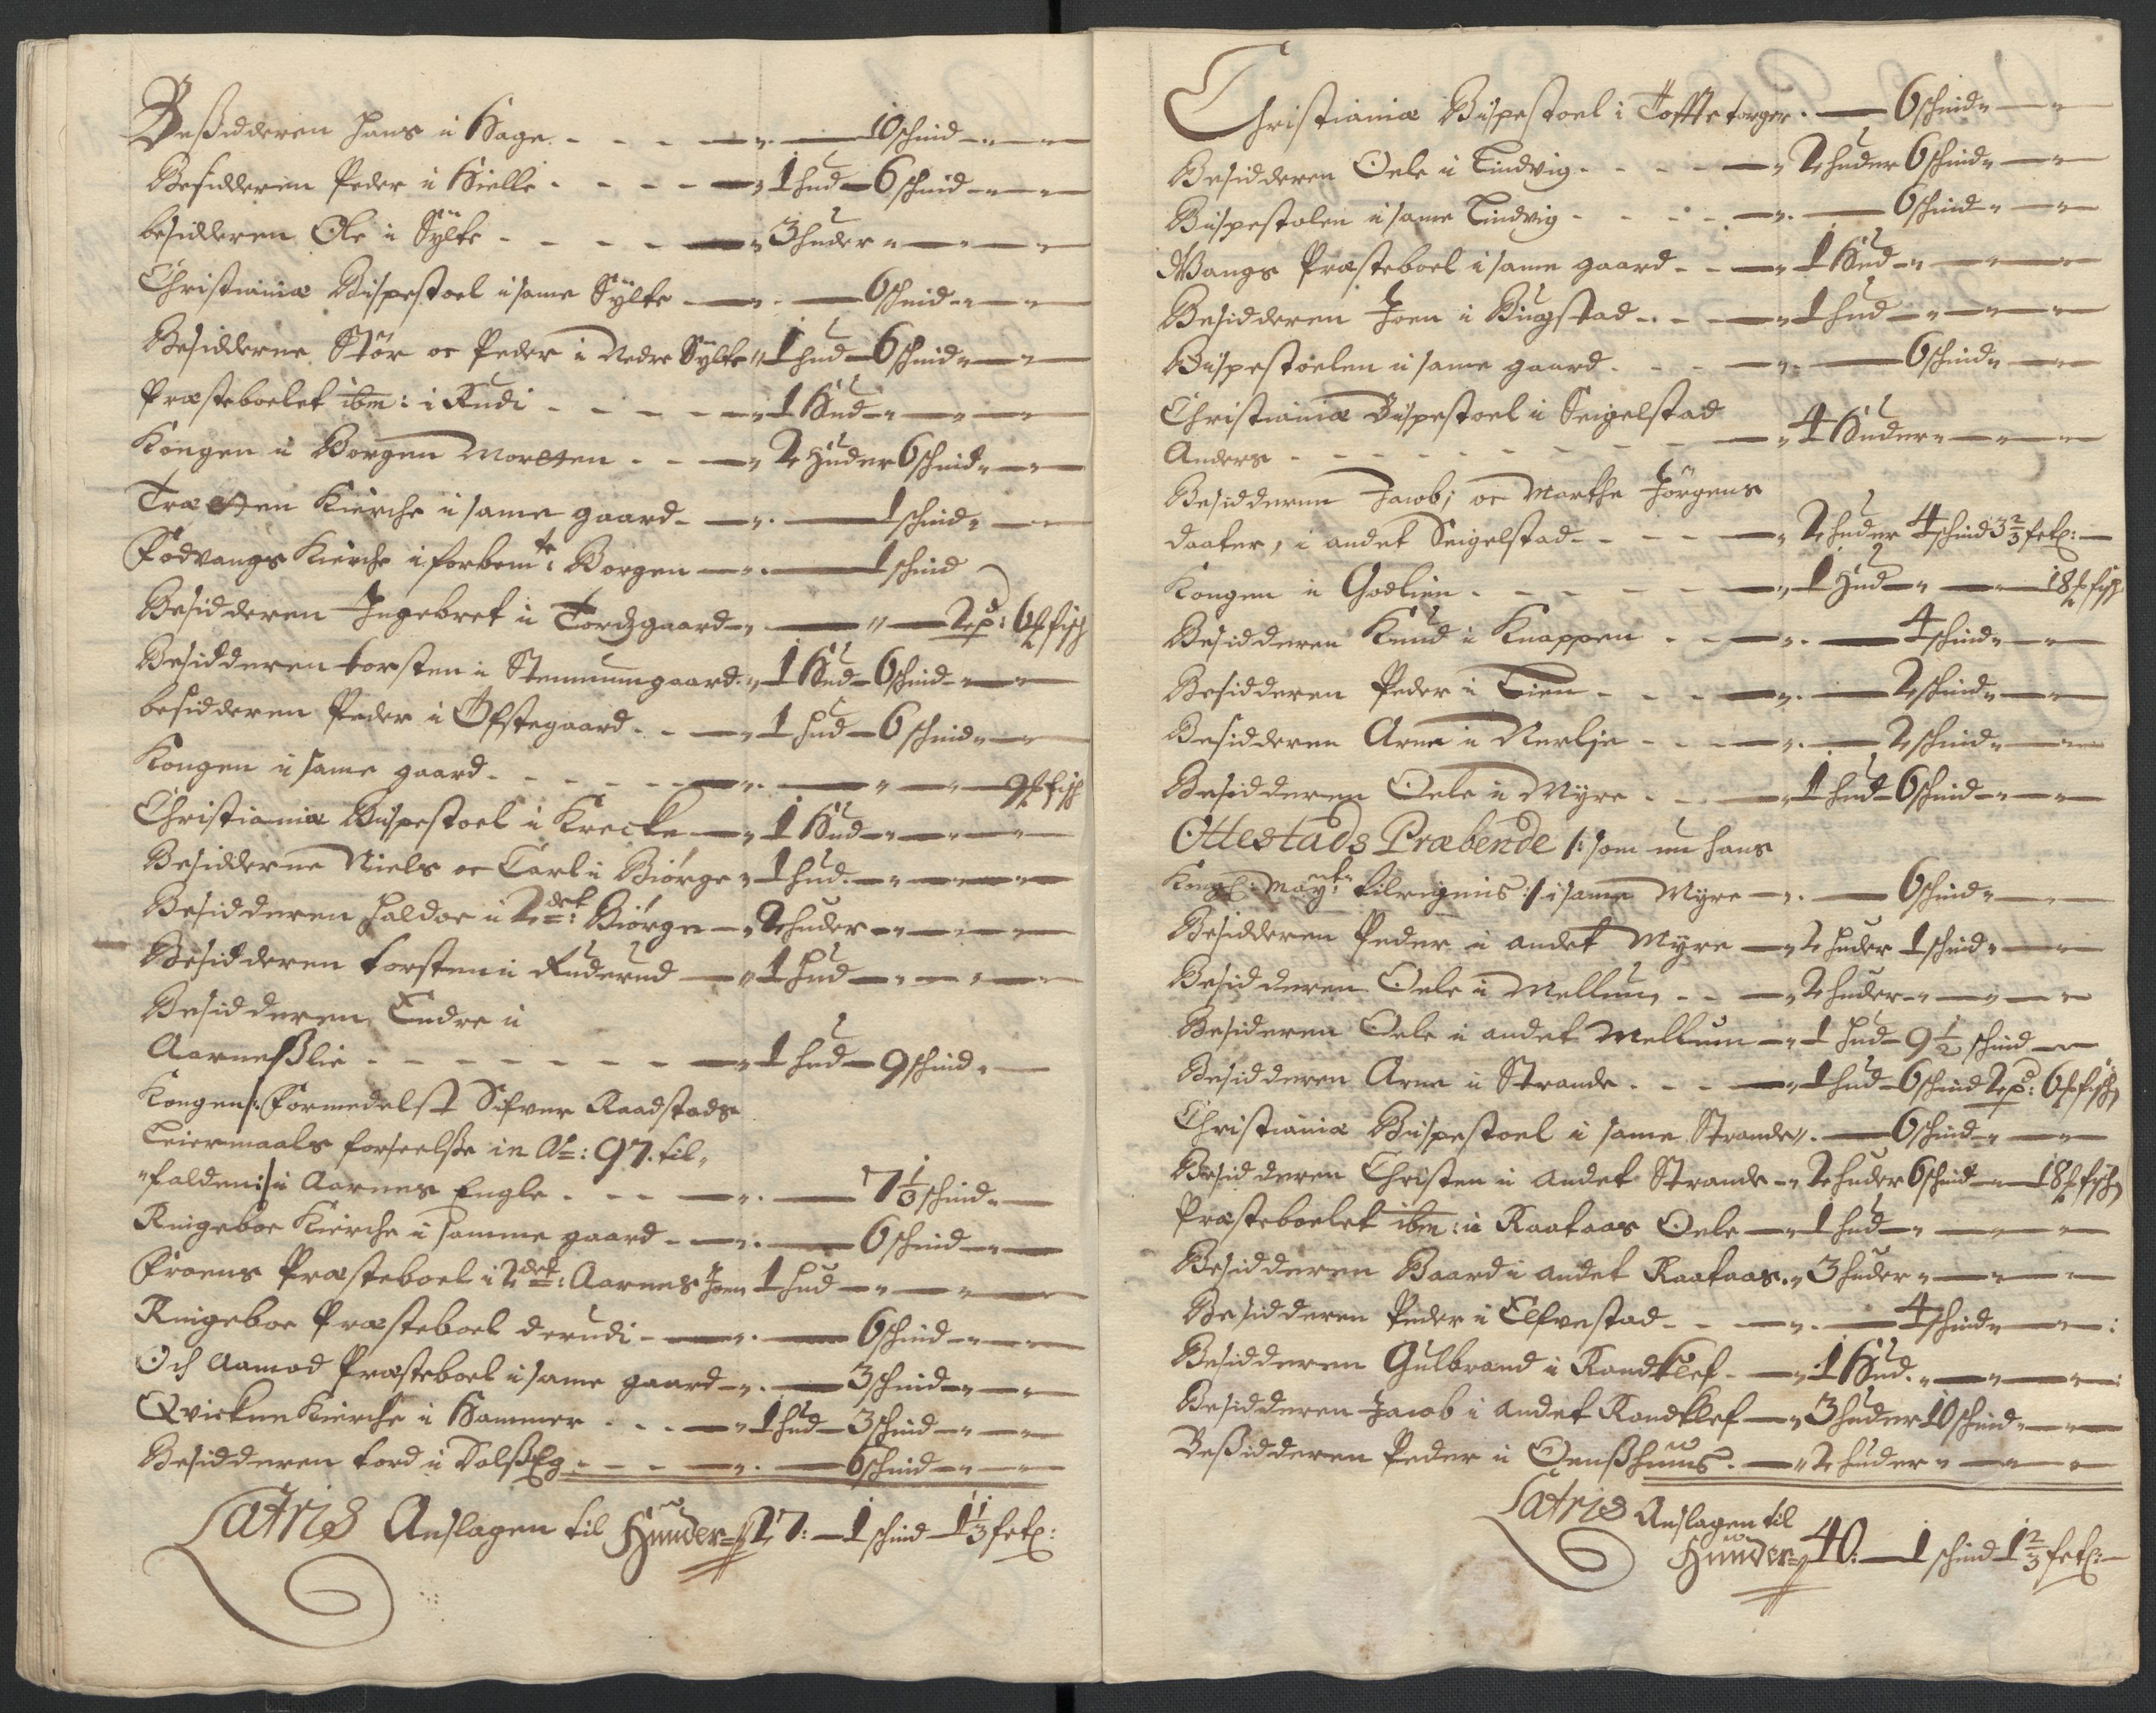 Beßidderen Hans i Hage - - - — „ . — 10 schind — „ —
Besidderen Peder i Hielle - - - — „ 1 hud — 6 schind — „ —
besidderen Ole i Sylte - - - — „ 3 huder „ — „ —
Christiania Bispestoel i same Sylte — „ . — 6 schind — „ —
Besidderne Stör oc Peder i Nedre Sylte „ 1 hud — 6 schind „ —
Præsteboelet ibm: i Rudi - - - — „ 1 Hud — „ — „ —
Kongen i Borgen Morten - - — „ 2 Huder 6 schind „ —
Trætten Kierche i same gaard - — „ . — 1 schind „ —
Fodvangs Kierche i forbemte: Borgen — „ . — 1 schind
Besidderen Ingebret i Tordzgaard — „ — „ — 2 spd: 6 f fisch
Besidderen torsten i Stemmumgaard - „ 1 Hud — 6 schind — „ —
besidderen Peder i Öfstegaard - - — „ 1 hud — 6 schind „ —
Kongen i same gaard - - - — „ . — „ — „ — 9 f fisch
Christiania Bispestoel i Krecke — „ 1 Hud — „ — „ —
Besidderne Niels oc Carl i Biörge „ 1 hud — „ — „ —
Besidderen Haldor i 2det: Biörge — „ 2 huder — „ — „ —
Besidderen torsten i Ruderud — „ 1 hud — „ — „ —
Besidderen Endre i
Aarneßlie - - - - - - — „ 1 hud — 9 schind „ —
Kongen /: Formedelst Sifver Raadstads
Leiermaals forseelße in Ao: 97. til„
„falden :/ i Aarnes Engle - - - — „ . — 7 1/3 schind „ —
Ringeboe Kierche i samme gaard - — „ . — 6 schind — „ —
Froens Præsteboel i 2det: Aarnes Joen 1 hud — „ — „ —
Ringeboe Præsteboel derudi - — „ . — 6 schind — „ —
Och Aamod Præsteboel i same gaard — „ . — 3 schind — „ —
Qvickne Kierche i Hammer - - - — „ 1 hud — 3 schind — „ —
Besidderen tord i Dolßeg - - - — „ . — 6 schind — „ —
Latris Anslagen til Huuder = 27: — 1 schind — 1 1/3 setl:
Christiania Bispestoel i Tofttetorger . — 6 schind „ — „
Besidderen Oele i Lindvig - - - — „ 2 huder 6 schind „ — „
Bispestolen i same Lindvig - - - — „ . — 6 schind „ — „
Wangs Præsteboel i same gaard - - — „ 1 Hud — „ — „ —
Besidderen Joen i Biugstad - - — „ 1 hud — „ — „ —
Bispestoelen i same gaard - - - — „ . — 6 schind „ — „
Christiania Bispestoel i Seigelstad
Anders - - - - - - — „ 4 Huder „ — „ —
Besidderen Jacob; oc Marthe Jörgens
daater, i andet Seigelstad - - - — „ 2 huder 4 schind 3 2/3 setl: —
Kongen i Godlien - - - - — „ 1 Hud — „ — „ — 18 f fisch
Besidderen Knud i Knappen - - — „ . — 4 schind „ — „
Besidderen Peder i Lien - - - — „ . — 2 schind „ — „
Besidderen Arne i Nerlje - - - — „ . — 2 schind „ — „
Besidderen Oele i Myre - - — „ 1 hud — 6 schind — „ —
Ottestads Præbende /: som nu hans
Kongl: Maytt: tilregnis :/ i same Myre — „ . — 6 schind „ —
Besidderen Peder i andet Myre — „ 2 huder 1 schind „ — „
Besidderen Oele i Mellum, - - — „ 2 huder — „ — „ —
Besideren Oele i andet Mellum — „ 1 hud — 9 1/2 schind —
Besidderen Arne i Strande - - - — „ 1 hud — 6 schind 2 spd: 6 f fisch
Christiania Bispestoel i same Strande „ . — 6 schind — „ —
Besidderen Christen i andet Strande — „ 2 huder 6 schind — „ 18 f fisch
Præsteboelet ibm: i Raataas Oele — „ 1 hud — „ — „ —
Besidderen Baard i andet Raataas . „ 3 huder „ — „ —
Besidderen Peder i Elfvestad - - — „ . — 4 schind „ — „ :
Besidderen Gulbrand i Randklef - — „ 1 Hud . „ — „ — :
Besidderen Jacob i andet Randklef — „ 3 huder 10 schind „ —
Beßidderen Peder i Oenßhuus . — „ 2 huder „ — „ —
Latris Anslagen til
Huuder = 40: — 1 schind 1 2/3 setl: —